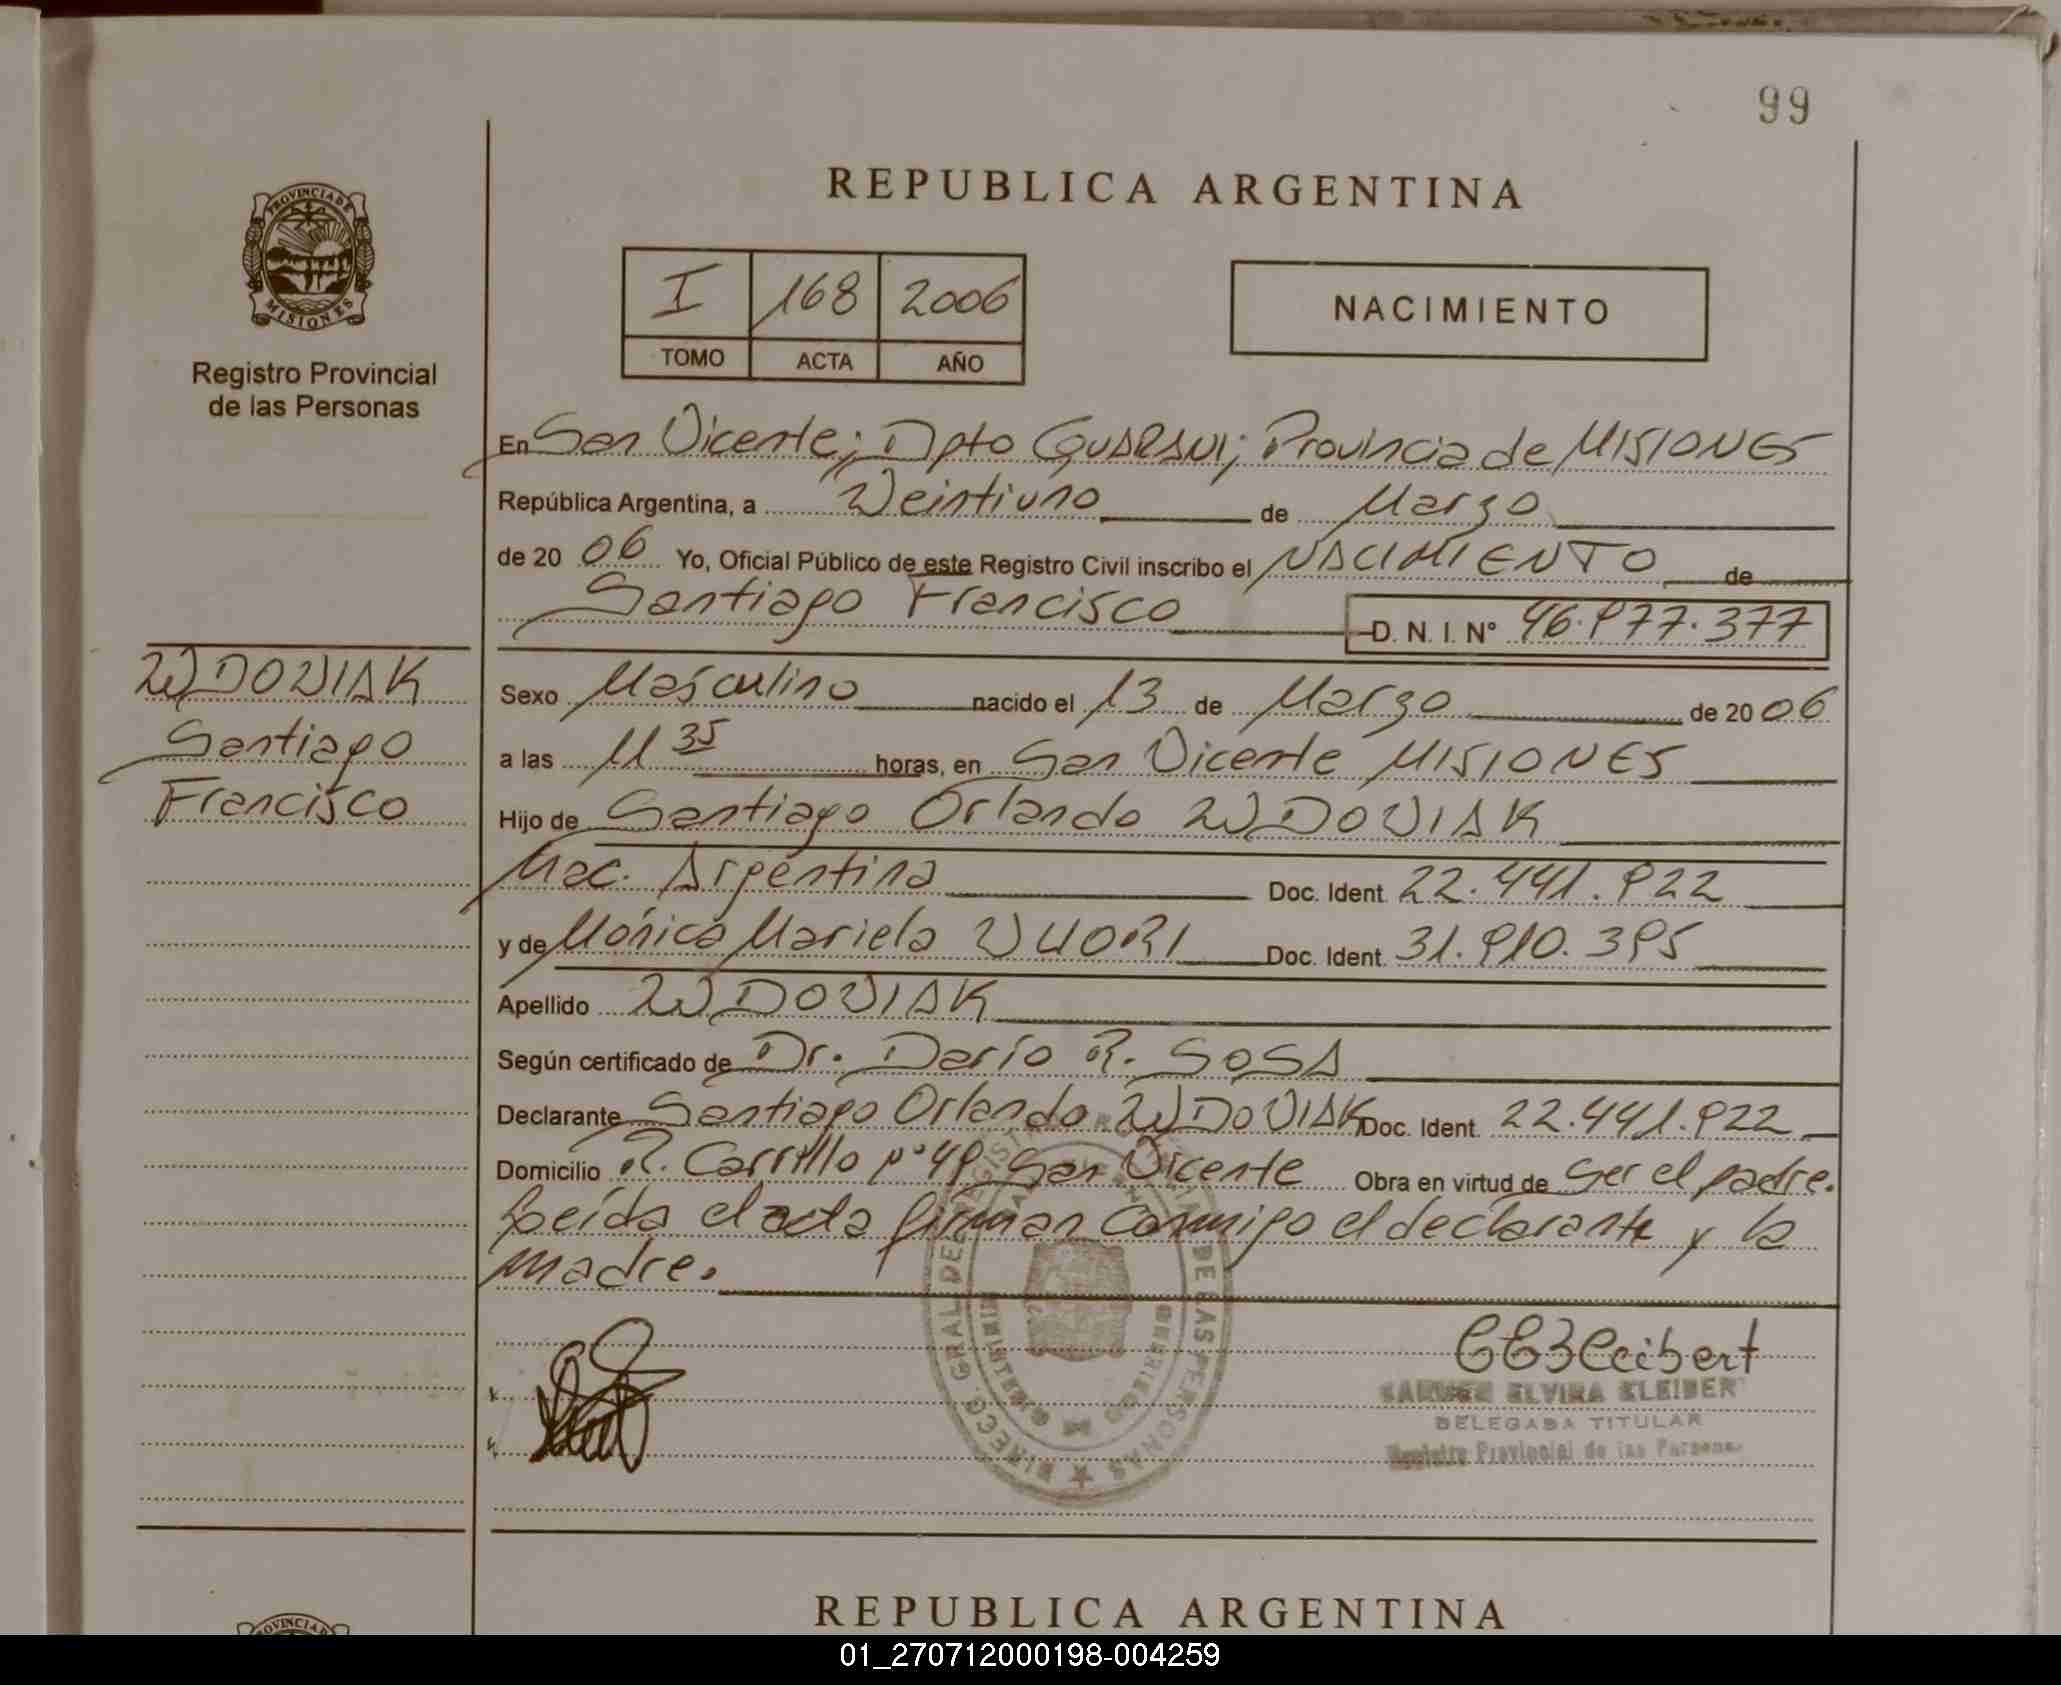 99
REPUBLICA ARGENTINA
PROVINCIA DE
MISIONES
Registro Provincial
de las Personas
I 168 2006
TOMO ACTA AÑO
NACIMIENTO
En San Vicente; Dpto GUARANI; Provincia de MISIONES
República Argentina, a Veintiuno de Marzo
de 20 06 Yo, Oficial Público de este Registro Civil inscribo el NACIMIENTO de
Santiago Francisco D. N. I. Nº 46.977.377
WDOVIAK
Santiago
Francisco
Sexo Masculino nacido el 13 de Marzo de 20 06
a las 11 35 horas, en San Vicente MISIONES
Hijo de Santiago Orlando WDOVIAK
Nac. Argentina Doc. Ident. 22.441.922
y de Mónica Mariela VUORI Doc. Ident. 31.910.395
Apellido WDOVIAK
Según certificado de Dr. Darío R. SOSA
Declarante Santiago Orlando WDOVIAK Doc. Ident. 22.441.922
Domicilio R. Carrillo nº 49 San Vicente Obra en virtud de ser el padre.
Leída el acta firman conmigo el declarante y la
madre.
CARMEN ELVIRA KLEIBERT
DELEGADA TITULAR
Registro Provincial de las Personas
REPUBLICA ARGENTINA
01_270712000198-004259